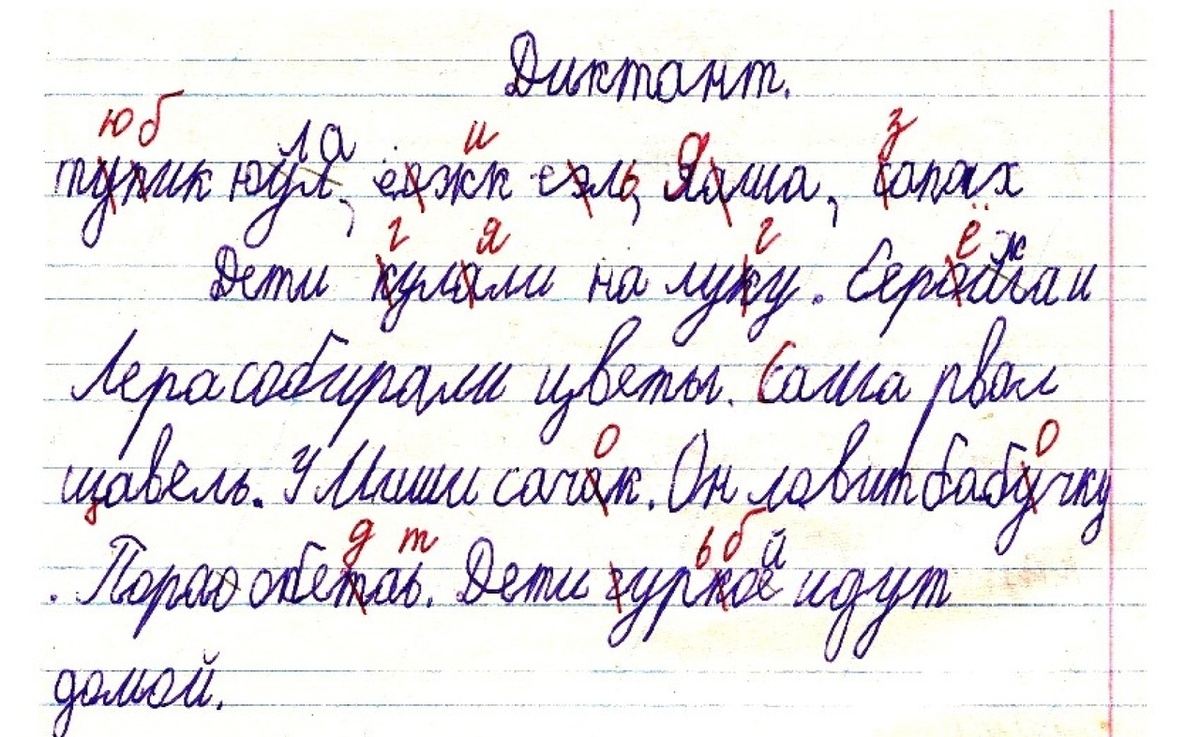 Диктант.
ю б ла и з
тупик юул, ёожк еэль, Яаша, сапах
г я г ё ж
Дети кулали на луку. и
Лера собирали цветы. Саша рвал
о о
щавель. У Миши сачак. Он ловит бабучку
д т ь б й
. Пора Дети гуркое идут
домой.